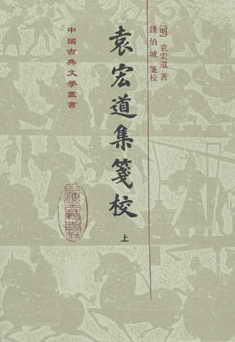 [明]袁宏道 著
錢伯城 箋校
袁宏道集箋校
上
中國古典文學叢書